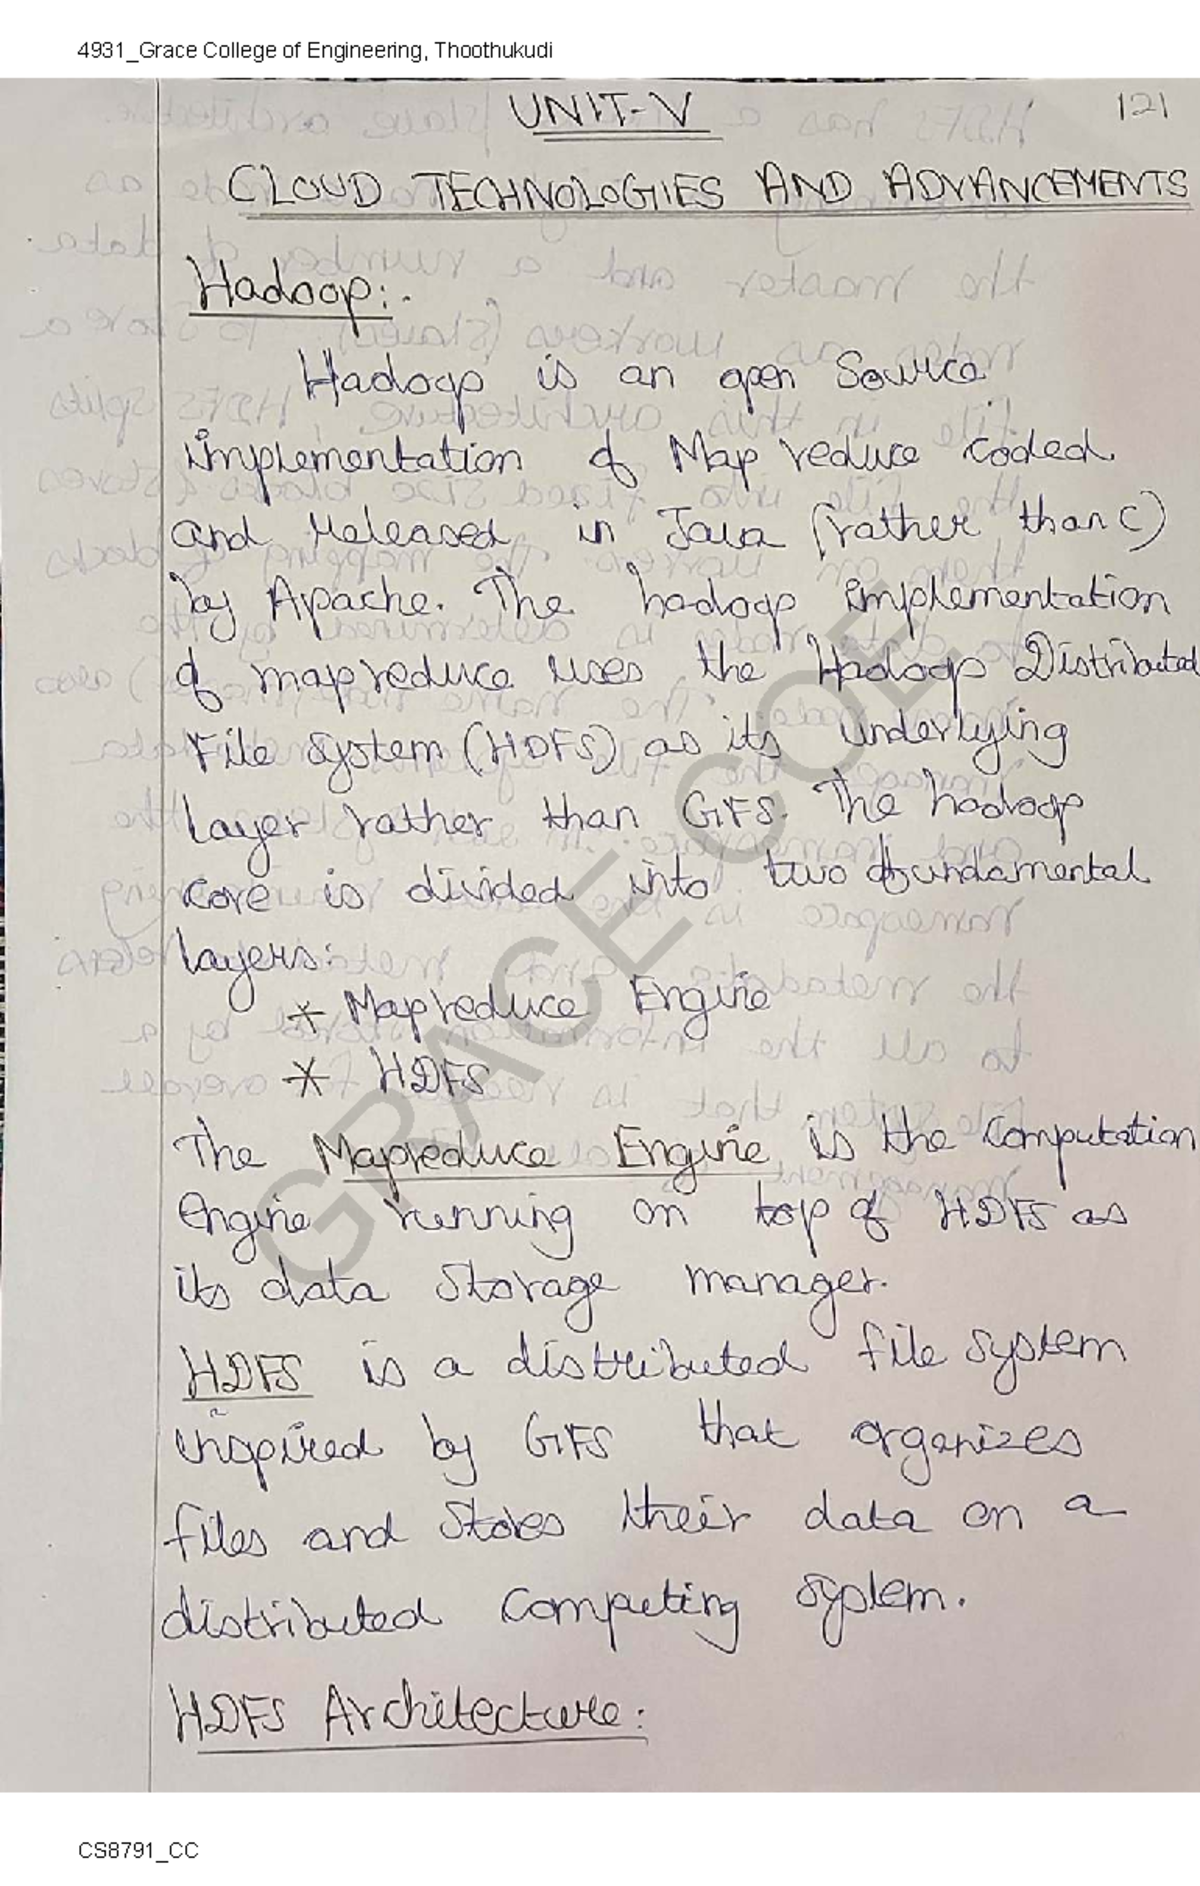 4931_Grace College of Engineering, Thoothukudi
UNIT-V 121
CLOUD TECHNOLOGIES AND ADVANCEMENTS
Hadoop:-
Hadoop is an open Source
implementation of Map reduce coded
and released in Java (rather than C)
by Apache. The hadoop implementation
of mapreduce uses the Hadoop Distributed
File System (HDFS) as its underlying
layer rather than GFS. The hadoop
core is divided into two fundamental
layers:
* Mapreduce Engine
* HDFS
The Mapreduce Engine is the computation
engine running on top of HDFS as
its data storage manager.
HDFS is a distributed file system
inspired by GFS that organizes
files and stores their data on a
distributed computing system.
HDFS Architecture:
GRACE COE
CS8791_CC